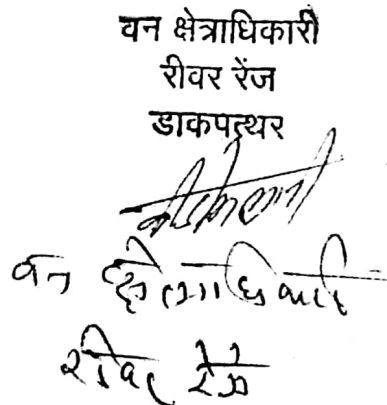 वन क्षेत्राधिकारी
रीवर रेंज
डाकपत्थर
वन क्षेत्राधिकारी
रीवर रेंज